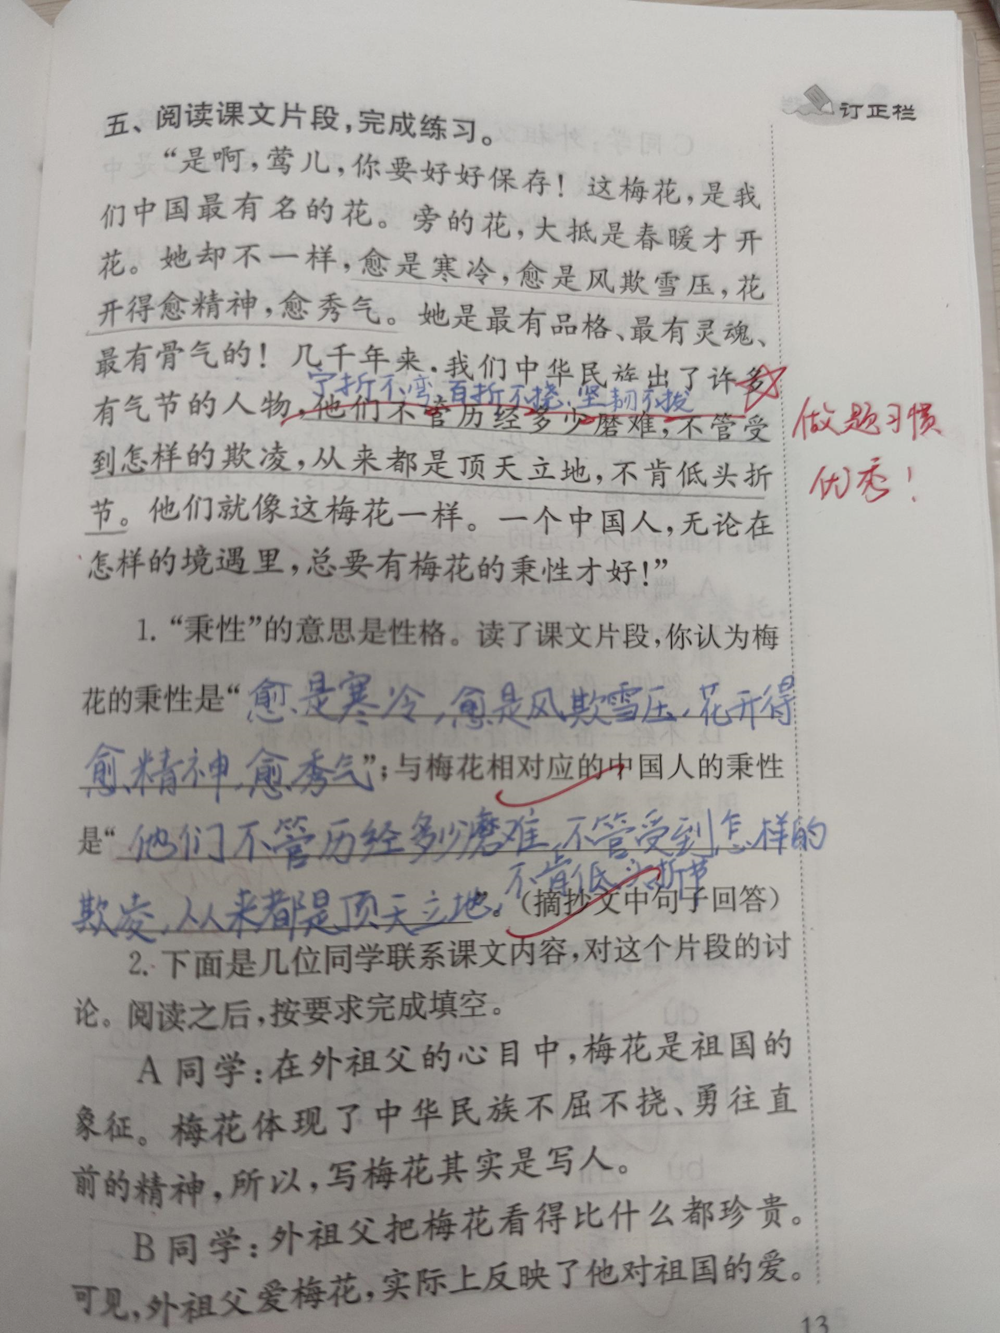 订正栏
五、阅读课文片段，完成练习。
“是啊，莺儿，你要好好保存！这梅花，是我
们中国最有名的花。旁的花，大抵是春暖才开
花。她却不一样，愈是寒冷，愈是风欺雪压，花
开得愈精神，愈秀气。她是最有品格、最有灵魂、
最有骨气的！几千年来，我们中华民族出了许多
宁折不弯、百折不挠、坚韧不拔
有气节的人物，他们不管历经多少磨难，不管受
到怎样的欺凌，从来都是顶天立地，不肯低头折
节。他们就像这梅花一样。一个中国人，无论在
怎样的境遇里，总要有梅花的秉性才好！”
做题习惯
优秀！
1. “秉性”的意思是性格。读了课文片段，你认为梅
花的秉性是“愈是寒冷，愈是风欺雪压，花开得
愈精神，愈秀气”；与梅花相对应的中国人的秉性
是“他们不管历经多少磨难，不管受到怎样的
欺凌，从来都是顶天立地，不肯低头折节”。（摘抄文中句子回答）
2. 下面是几位同学联系课文内容，对这个片段的讨
论。阅读之后，按要求完成填空。
A 同学：在外祖父的心目中，梅花是祖国的
象征。梅花体现了中华民族不屈不挠、勇往直
前的精神，所以，写梅花其实是写人。
B 同学：外祖父把梅花看得比什么都珍贵。
可见，外祖父爱梅花，实际上反映了他对祖国的爱。
13